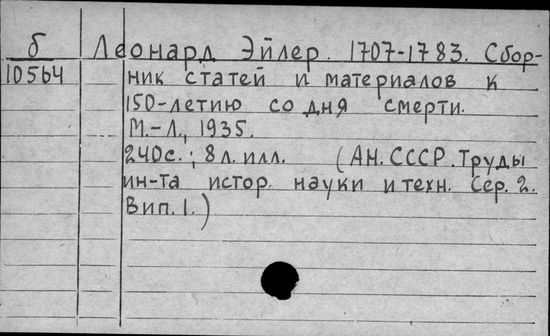 б Леонард Эйлер. 1707-1783. Сбор-
10564 ник статей и материалов к
150-летию со дня смерти.
М.-Л., 1935.
240с.; 8л. илл. (АН. СССР. Труды
ин-та истор. науки и техн. Сер. 2.
Вип. 1.)